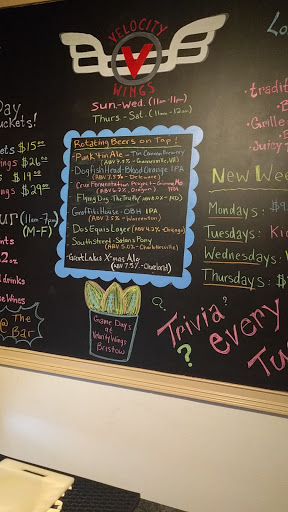 VELOCITY
V
WINGS
Sun-Wed. (11am-11pm)
Thurs - Sat. (11am-12am)
Day
uckets!
ets $15.00
ings $26.00
s $19.00
ings $29.00
our (11am-7pm)
(M-F)
ints
2oz
l drinks
se Wines
@ The
Bar
Rotating Beers on Tap!
- Punk'kin Ale
- Dogfish Head - Blood Orange IPA
- Delaware)
Crux Fermentation Project - Gimme Mo
IPA
Flying Dog - The Truth
- MD)
- Graffiti House - OBH IPA
- Warrenton)
Dos Equis Lager
- Southstreet - Satans Pony
(ABV 5.0% - Charlottesville)
- Great Lakes X-mas Ale
(ABV 7.5% - Cleveland)
Game Days
at
Velocity Wings
Bristow
Lo
tradit
B
Grille
B
Juicy
New Wee
Mondays: $
Tuesdays: Ki
Wednesdays:
Thursdays: $
Trivia?
?
every
Tu